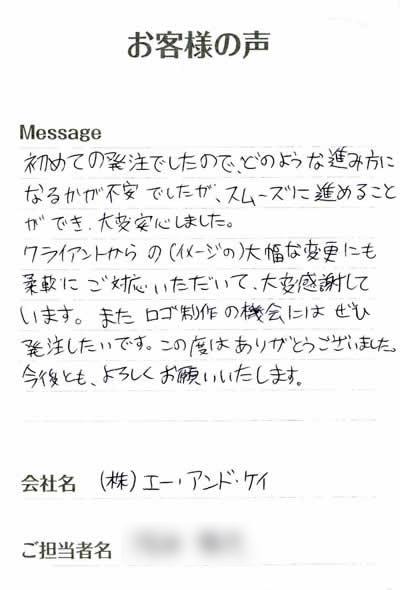 お客様の声
Message
初めての発注でしたので、どのような進み方に
なるかが不安でしたが、スムーズに進めること
ができ、大変安心しました。
クライアントからの(イメージの)大幅な変更にも
柔軟にご対応いただいて、大変感謝して
います。またロゴ制作の機会にはぜひ
発注したいです。この度はありがとうございました。
今後とも、よろしくお願いいたします。
会社名 (株)エー・アンド・ケイ
ご担当者名